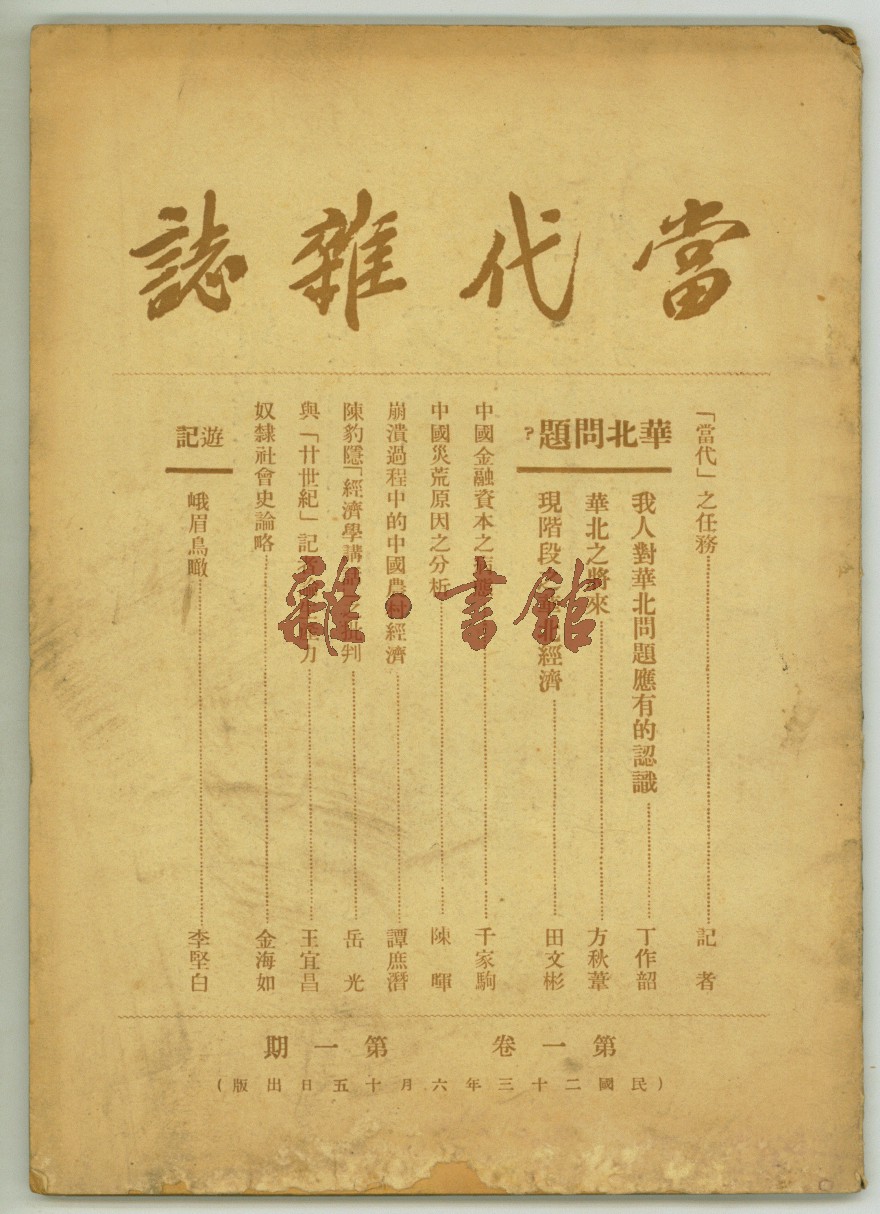 當代雜誌
「當代」之任務 記者
華北問題?
我人對華北問題應有的認識 丁作韶
華北之將來 方秋葦
現階段 華北經濟 田文彬
中國金融資本之病態 千家駒
中國災荒原因之分析 陳暉
崩潰過程中的中國農村經濟 譚庶潛
陳豹隱「經濟學講話」之批判 岳光
與「廿世紀」記者 力 王宜昌
奴隸社會史論略 金海如
遊記
峨眉鳥瞰 李堅白
第一卷 第一期
(民國二十三年六月十五日出版)
雜·書館